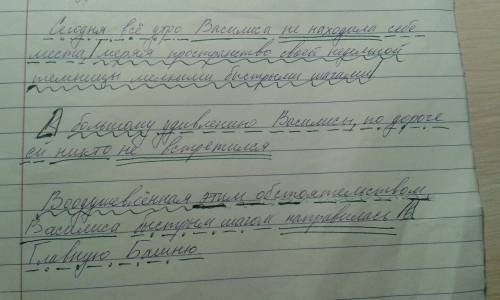 Сегодня всё утро Василиса не находила себе
места, меряя пространство своей недельной
темницы мелкими быстрыми шагами
К большому удивлению Василисы, по дороге
ей никто не встретился
Воодушевлённая этим обстоятельством
Василиса быстрым шагом направилась в
Главную Башню